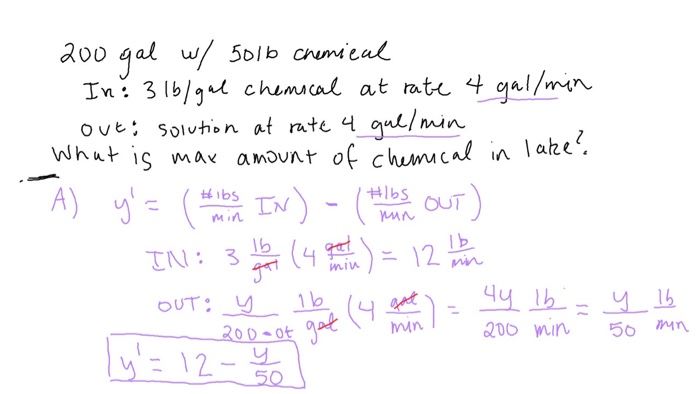 200 gal w/ 50lb chemical
In: 3 lb/gal chemical at rate 4 gal/min
out: solution at rate 4 gal/min
What is max amount of chemical in lake?
A) y' = (#lbs/min IN) - (#lbs/min OUT)
IN: 3 lb/gal (4 gal/min) = 12 lb/min
OUT: y/200-0t lb/gal (4 gal/min) = 4y/200 lb/min = y/50 lb/min
y' = 12 - y/50